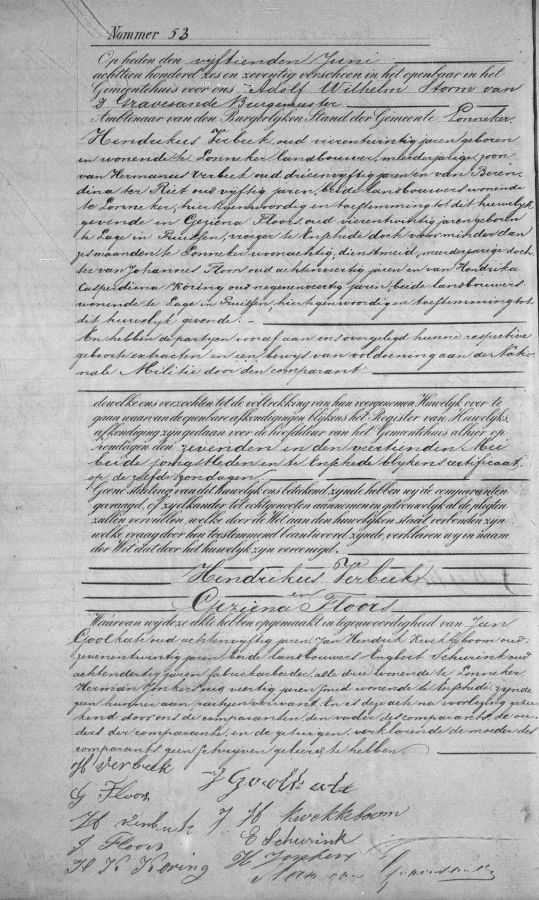 Nommer 53
Op heden den vijftienden Juni
achttien honderd zes en zeventig verscheen in het openbaar in het
Gemeentehuis voor ons Adolf Wilhelm Storm van
's Gravesande Burgemeester
Ambtenaar van den Burgerlijken Stand der Gemeente Lonneker
Hendrikus Verbeek oud vierentwintig jaren geboren
en wonende te Lonneker landbouwer, meerderjarige zoon
van Hermanus Verbeek oud drieenvijftig jaren en van Beren
dina te Riet oud vijftig jaren, beide landbouwers wonende
te Lonneker, hier tegenwoordig en toestemming tot dit huwelijk
gevende en Geziena Floors, oud vierentwintig jaren geboren
te Lage in Pruissen, vroeger te Enschede doch voor minder dan
zes maanden te Lonneker woonachtig, dienstmeid, meerderjarige doch
ter van Johannes Floors oud achtenveertig jaren en van Hendrika
Casperdiena Koring oud negenenveertig jaren, beide landbouwers
wonende te Lage in Pruissen, hier tegenwoordig en toestemming tot
dit huwelijk gevende.
En hebben de partyen vooraf aan ons overgelegd hunne respective
geboorte extracten en een bewijs van voldoening aan de Natio
nale Militie door den comparant.
dewelke ons verzochten tot de voltrekking van hun voorgenomen Huwelijk over te
gaan waarvan de openbare afkondigingen blijkens het Register van Huwelijks
afkondiging zyn gedaan voor de hoofddeur van het Gemeentehuis alhier op
zondagen den zevenden en den veertienden Mei
beide jongstleden en te Enschede blykens certificaat,
op dezelfde zondagen
Geene stuiting van dit huwelijk ons bekend zynde hebben wy de comparanten
gevraagd, of zy elkander tot echtgenooten aannemen en getrouwelijk al de pligten
zullen vervullen, welke door de Wet aan den huwelijken staat verbonden zyn
welke vraag door hun toestemmend beantwoord zynde, verklaren wy in naam
der Wet dat door het huwelijk zyn vereenigd.
Hendrikus Verbeek
en
Geziena Floors
Waarvan wij deze akte hebben opgemaakt in tegenwoordigheid van Jan
Goolkate oud achtenvijftig jaren, Jan Hendrik Kwekkeboom oud
zevenentwintig jaren beide landbouwers Engbert Schurink oud
achtendertig jaren fabriekarbeider, alle drie wonende te Lonneker
Herman Jonkers oud veertig jaren smid wonende te Enschede, zynde
geen hunner aan partyen verwant. En is deze acte na voorlezing getee
kend door ons de comparanten den vader des comparants, de ou
ders der comparante, en de getuigen, verklarende de moeder des
comparants geen schryven geleerd te hebben.
H Verbeek
J Goolkate
G Floors
H Verbeek
J H Kwekkeboom
J Floors
E Schurink
H K Koring
H Jonkers